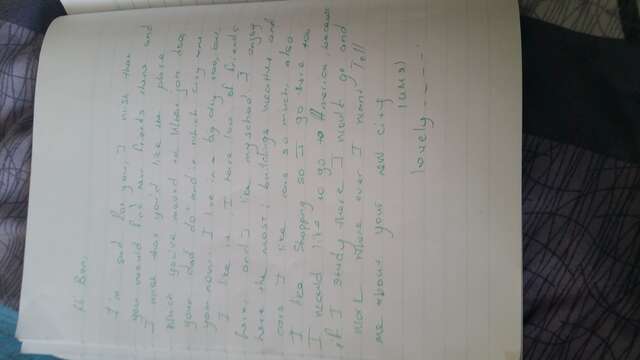 Hi Ben,
I'm sad for you, I wish that
you would find new friends there and
I wish that you'd like the place
which you've moved in. What job does
your dad do? and in which city are
you now. I live in a big city too, but
I like it. I have lot of friends
here, and I like my school. I enjoy
here the most; buildings weather and
cars I like cars so much, also
I like shopping so I go there too
I would like to go to America, because
if I study there I would go and
work where ever I want Tell
me about your new city
lovely - - - -